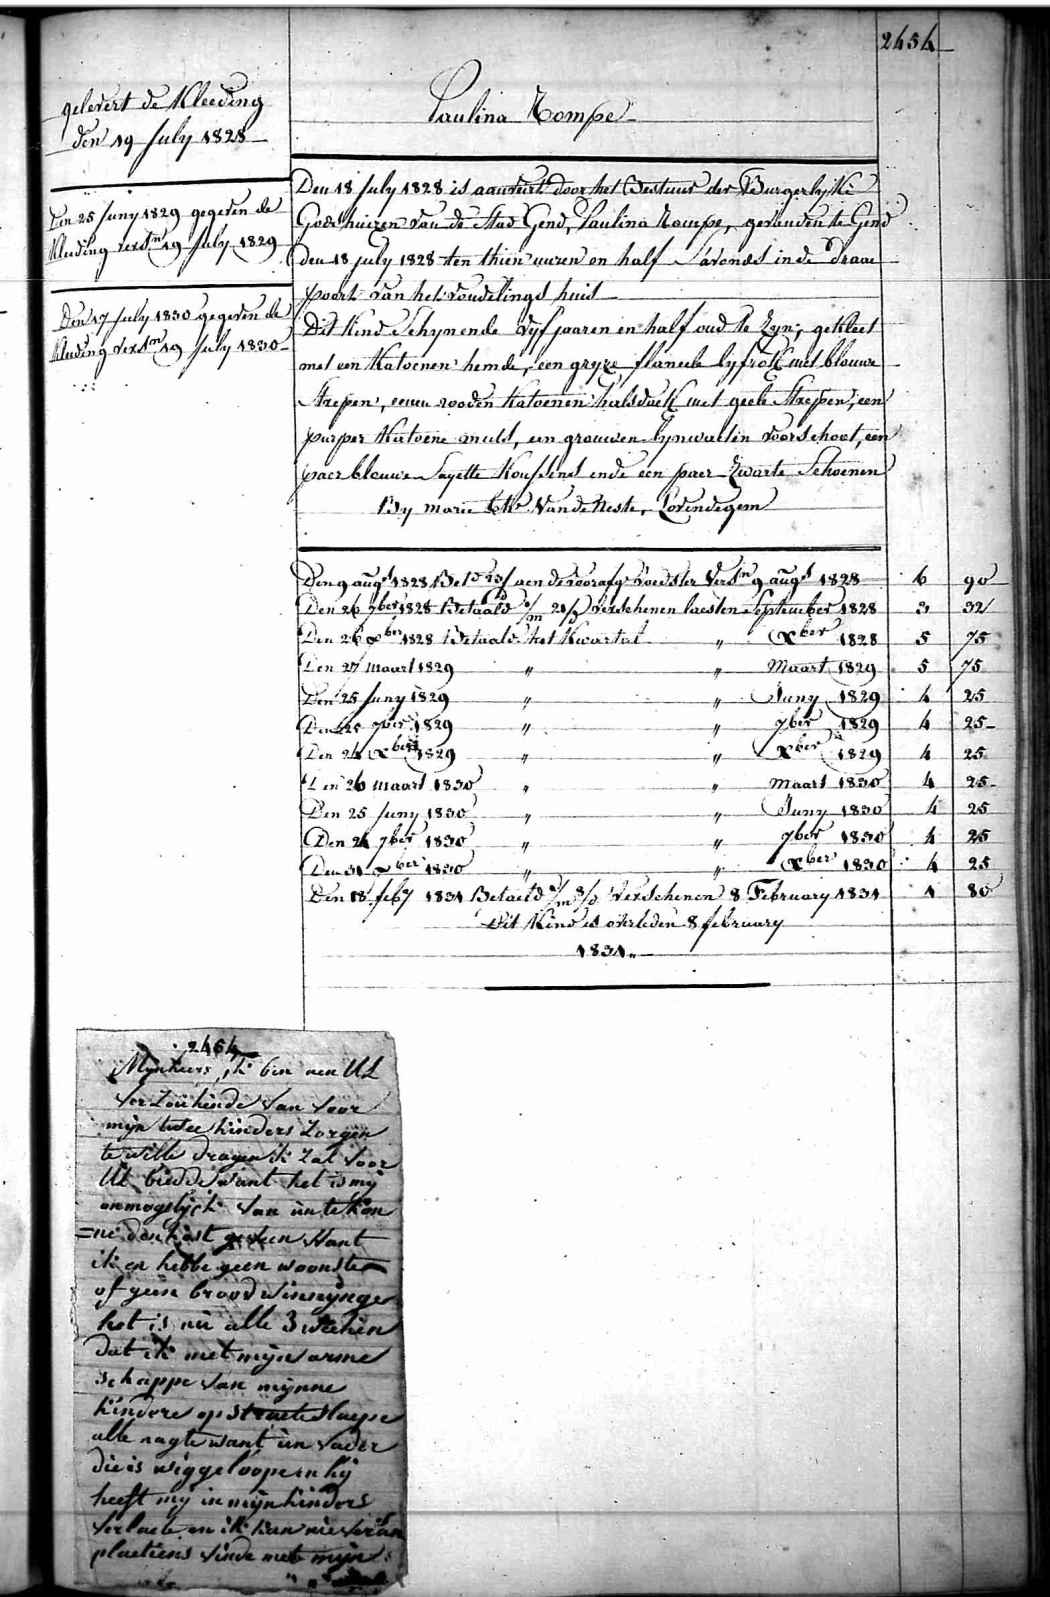 2454
gelevert de Kleeding
den 19 July 1828
Paulina Rompe
Den 18 July 1828 is aanveirt door het Bestuur der Burgerlyke
Godshuizen van de Stad Gend, Paulina Rompe, gevonden te Gend
den 18 july 1828 ten thien uuren en half s'avonds in de Draai
poort van het vondelings huis
Dit Kind Schynende vyf jaaren en half oud te zyn, gekleet
met een Katoenen hemde, een gryze flaneele lyfrok met blauwe
Strepen, eenen rooden Katoenen halsdoek met geele Strepen, een
purper Katoene muts, een grauwen lynwaetin voorschoot, een
paer blauwe Sayette Koussens ende een paer Zwarte Schoenen
By marie Van de Neste, Lovendegem
Den 25 Juny 1829 gegeven de
Kleeding versn 19 July 1829
Den 17 July 1830 gegeven de
Kleeding versn 19 July 1830
Den 9 augt 1828 Betd aen de voorafge voedster versn 9 augt 1828 6 90
Den 26 7ber 1828 Betaald verschenen laesten September 1828 3 32
Den 26 Xber 1828 Betaald het Kwartal " Xber 1828 5 75
Den 27 maart 1829 " " Maart 1829 5 75
Den 25 Juny 1829 " " Juny 1829 4 25
Den 25 7ber 1829 " " 7ber 1829 4 25
Den 24 Xber 1829 " " Xber 1829 4 25
Den 26 maart 1830 " " Maart 1830 4 25
Den 25 Juny 1830 " " Juny 1830 4 25
Den 24 7ber 1830 " " 7ber 1830 4 25
Den 31 Xber 1830 " " Xber 1830 4 25
Den 18 feby 1831 Betaeld Verschenen 8 February 1831 1 80
Dit Kind is overleden 8 february
1831.
2454
Mynheers, ik ben aen UL
verzoukende van voor
mijn twee kinders zorgen
te wille dragen ik zal voor
UL bidde want het is mij
onmogelijck van un te kon
=ne den kost geven Want
ik en hebbe geen woonste
of geen brood winnijnge
het is nu alle 3 weken
dat ik met mijn arme
schappe van mijnne
kindere op straete slaepe
alle nagte want un vader
die is wiggeloopen hij
heeft mij in mijn kinders
verlaete en ik kan nieverans
plaetiens vinde met mijn